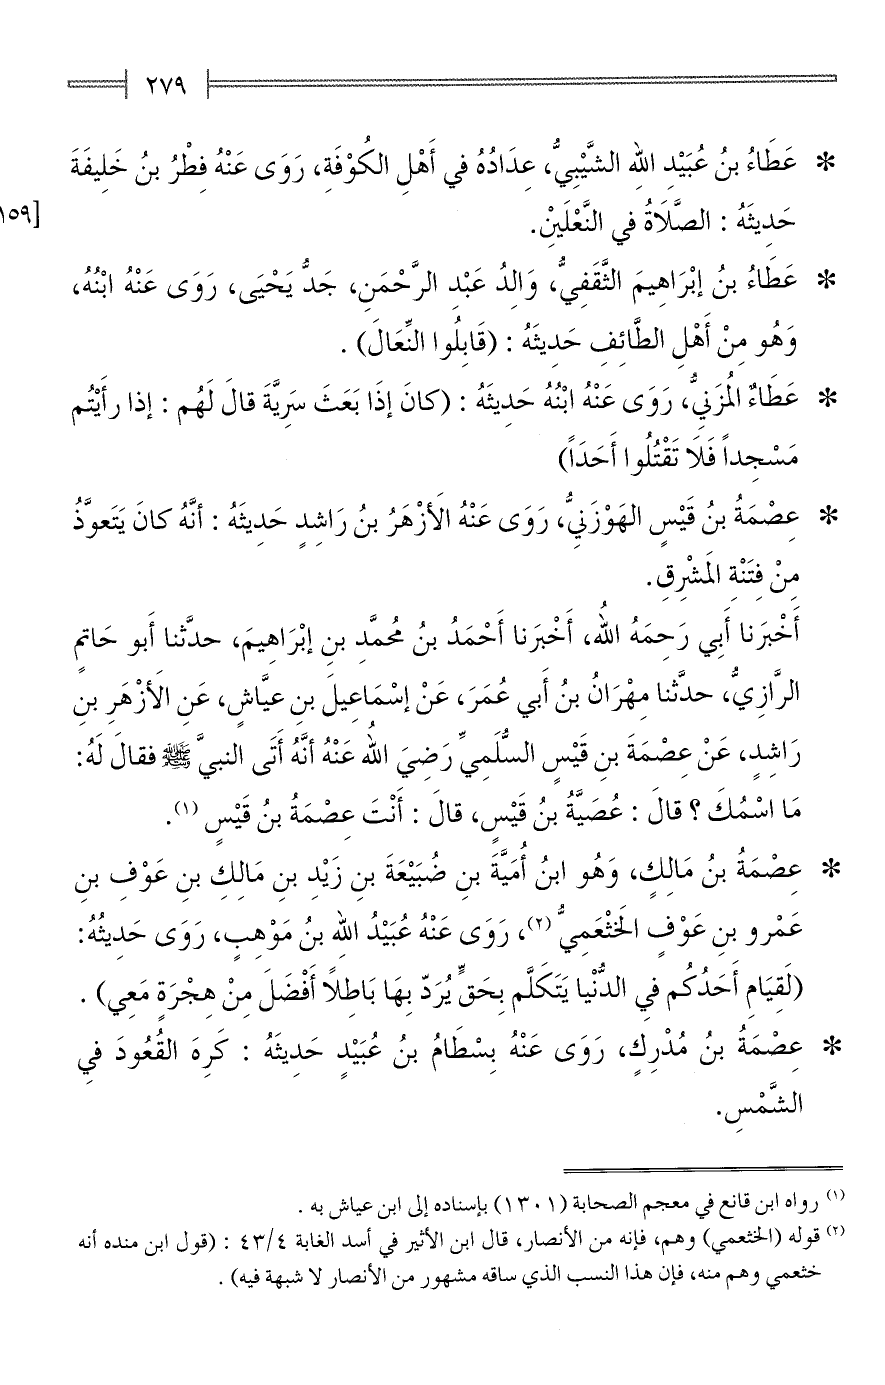 ٢٧٩
* عَطَاءُ بنُ عُبَيْدِ الله الشَّيْبِيُّ، عِدَادُهُ في أَهْلِ الكُوْفَةِ، رَوَى عَنْهُ فِطْرُ بنُ خَلِيفَةَ
حَدِيثَهُ : الصَّلَاةُ في النَّعْلَيْنِ.
[١٥٩
* عَطَاءُ بنُ إبْرَاهِيمَ الثَّقَفِيُّ، وَالدُ عَبْدِ الرَّحْمَنِ، جَدُّ يَحْيَى، رَوَى عَنْهُ ابْنُهُ،
وَهُو مِنْ أَهْلِ الطَّائِفِ حَدِيثَهُ : (قَابِلُوا النِّعَالَ) .
* عَطَاءٌ المُزَنيُّ، رَوَى عَنْهُ ابْنُهُ حَدِيثَهُ : (كانَ إذَا بَعَثَ سَرِيَّةَ قالَ لَهُم : إذا رأَيْتُم
مَسْجِداً فَلَا تَقْتُلُوا أَحَدَاً)
* عِصْمَةُ بنُ قَيْسٍ الهَوْزَنِيُّ، رَوَى عَنْهُ الأَزْهَرُ بنُ رَاشِدٍ حَدِيثَهُ : أنَّهُ كانَ يَتَعوَّذُ
مِنْ فِتَنْةِ المَشْرِقِ.
أَخْبَرَنا أَبي رَحِمَهُ اللهُ، أَخْبَرَنا أَحْمَدُ بنُ مُحمَّدِ بنِ إبْرَاهِيمَ، حدَّثنا أبو حَاتمٍ
الرَّازِيُّ، حدَّثنا مِهْرَانُ بنُ أبي عُمَرَ، عَنْ إسْمَاعِيلَ بنِ عيَّاشٍ، عَنِ الأَزْهَرِ بنِ
رَاشِدٍ، عَنْ عِصْمَةَ بنِ قَيْسٍ السُّلَمِيِّ رَضِيَ اللهُ عَنْهُ أنَّهُ أَتَى النبيَّ ﷺ فقالَ لَهُ:
مَا اسْمُكَ ؟ قالَ : عُصَيَّةُ بنُ قَيْسٍ، قالَ : أَنْتَ عِصْمَةُ بنُ قَيْسٍ (١).
* عِصْمَةُ بنُ مَالِكٍ، وَهُو ابنُ أُمَيَّةَ بنِ ضُبَيْعَةَ بنِ زَيْدِ بنِ مَالِكِ بنِ عَوْفِ بنِ
عَمْرو بنِ عَوْفٍ الخَثْعَمِيُّ (٢)، رَوَى عَنْهُ عُبَيْدُ الله بنُ مَوْهِبٍ، رَوَى حَدِيثُهُ:
(لَقِيَام أَحَدُكُم في الدُّنْيا يَتَكَلَّم بِحَقٍّ يُرَدّ بِهَا بَاطِلاً أَفْضَلَ مِنْ هِجْرَةٍ مَعِي) .
* عِصْمَةُ بنُ مُدْرِكٍ، رَوَى عَنْهُ بِسْطَامُ بنُ عُبَيْدٍ حَدِيثَهُ : كَرِهَ القُعُودَ في
الشَّمْسِ.
(١) رواه ابن قانع في معجم الصحابة (١٣٠١) بإسناده إلى ابن عياش به .
(٢) قوله (الخثعمي) وهم، فإنه من الأنصار، قال ابن الأثير في أسد الغابة ٤٣/٤ : (قول ابن منده أنه
خثعمي وهم منه، فإن هذا النسب الذي ساقه مشهور من الأنصار لا شبهة فيه) .